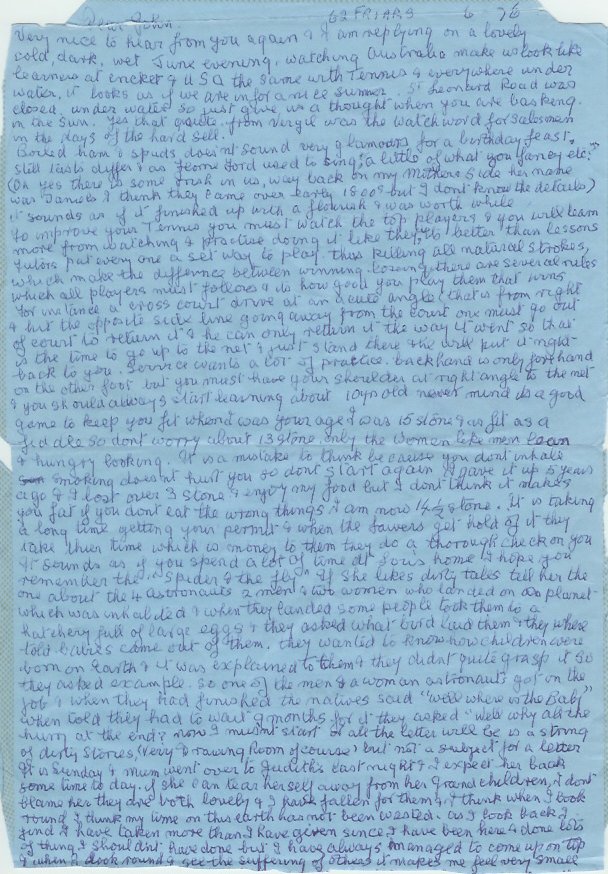 62 FRIARS 6 76
Dear John.
Very nice to hear from you again & I am replying on a lovely
cold, dark, wet June evening, watching Australia make us look like
learners at cricket & USA the same with Tennis & everywhere under
water, it looks as if we are in for a nice summer. St Leonard Road was
closed, under water so just give us a thought when you are basking
in the sun. Yes that quote from Vergil was the watchword for salesmen
in the days of the hard sell.
Boiled ham & spuds doesn't sound very glamours for a birthday feast,
still tasts differ & as used to sing "a little of what you fancy etc."
(Oh yes there is some Irish in us, way back on my Mothers side her name
was Daniels & I think they came over early 1800s but I dont know the details)
it sounds as if it finished up with a flourish & was worth while
To improve your Tennis you must watch the top players & you will learn
more from watching & practice doing it like they do better than lessons
Tutors put every one a set way to play, thus killing all natural strokes,
which make the differnce between winning & losing, there are several rules
which all players must follow & is how good you play them that wins
For instance a cross court drive at an acute angle that is from right
& hit the opposite side line going away from the court one must go out
of court to return it & he can only return it the way it went so that
is the time to go up to the net & just stand there & he will put it right
back to you. Service wants a lot of practice. back hand is only forehand
on the other foot but you must have your shoulder at right angle to the net
& you should always start learning about 10 yrs old never mind its a good
game to keep you fit when I was your age I was 15 stone & as fit as a
fiddle so dont worry about 13 stone only the women like men lean
& hungry looking. It is a mistake to think because you dont inhale
smoking doesn't hurt you so dont start again I gave it up 5 years
ago & I lost over 1 stone & enjoy my food but I dont think it makes
you fat if you dont eat the wrong things I am now 14½ stone. It is taking
a long time getting your permit & when the lawers get hold of it they
take thier time which is money to them they do a thorough check on you
It sounds as if you spend a lot of time at home I hope you
remember the "Spider & the fly" If she likes dirty tales tell her the
one about the 4 astronauts 2 men & two women who landed on a planet
which was inhabited & when they landed some people took them to a
hatchery full of large eggs & they asked what bird laid them & they where
told babies came out of them. they wanted to know how children were
born on Earth & it was explained to them & they didnt quite grasp it so
they asked example. So one of the men & a woman astronauts got on the
job & when they had finished the natives said "well where is the Baby"
when told they had to wait 9 months for it they asked "well why all the
hurry at the end? now I musnt start or all the letter will be is a string
of dirty stories, (very Drawing Room of course) but not a subject for a letter
It is Sunday & mum went over to Judiths last night & I expect her back
some time to day. if she can tear herself away from her Grandchildren, I dont
blame her they are both lovely & I have fallen for them & I think when I look
round I think my time on this earth has not been wasted. as I look back I
find I have taken more than I have given since I have been here & done lots
of things I shouldnt have done but I have always managed to come up on top
& when I look round & see the suffering of others it makes me feel very small